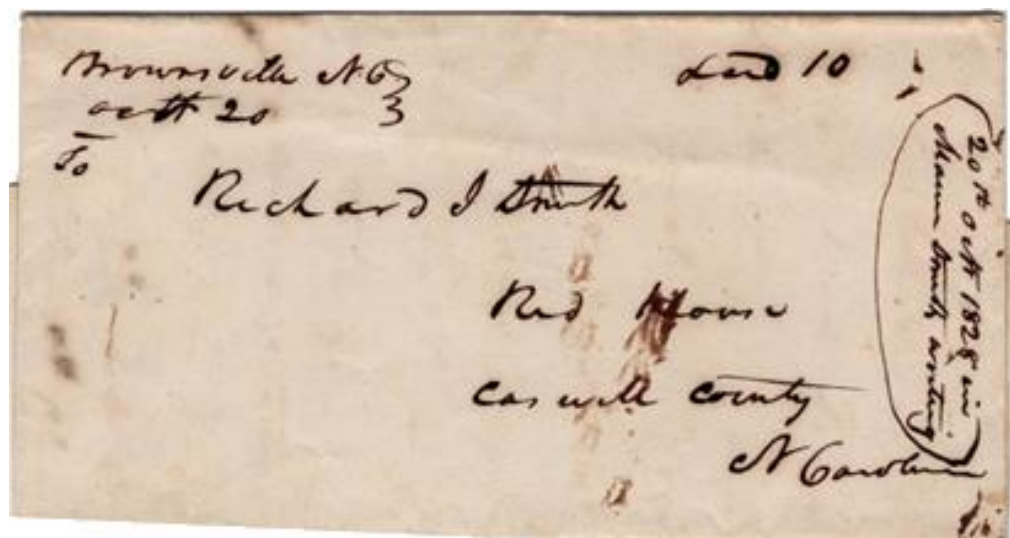 Brownsville N C
octt 20
Paid 10
To
Richard I Smith
Red House
Caswell County
N Carolina
20th octt 1828 in
Smith writing